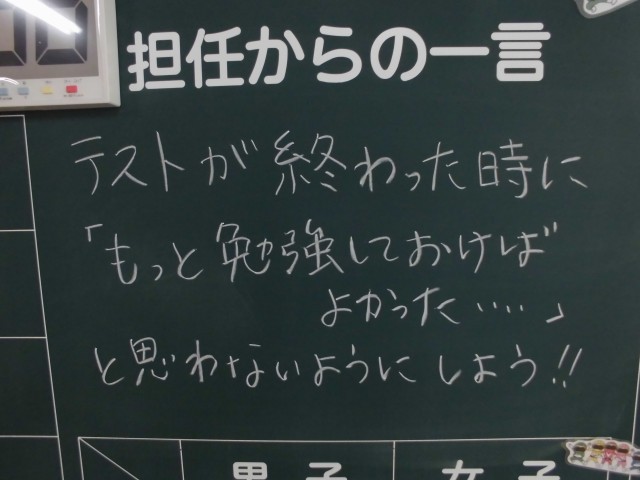 担任からの一言
テストが終わった時に
「もっと勉強しておけば
よかった‥‥」
と思わないようにしよう!!
男子 女子